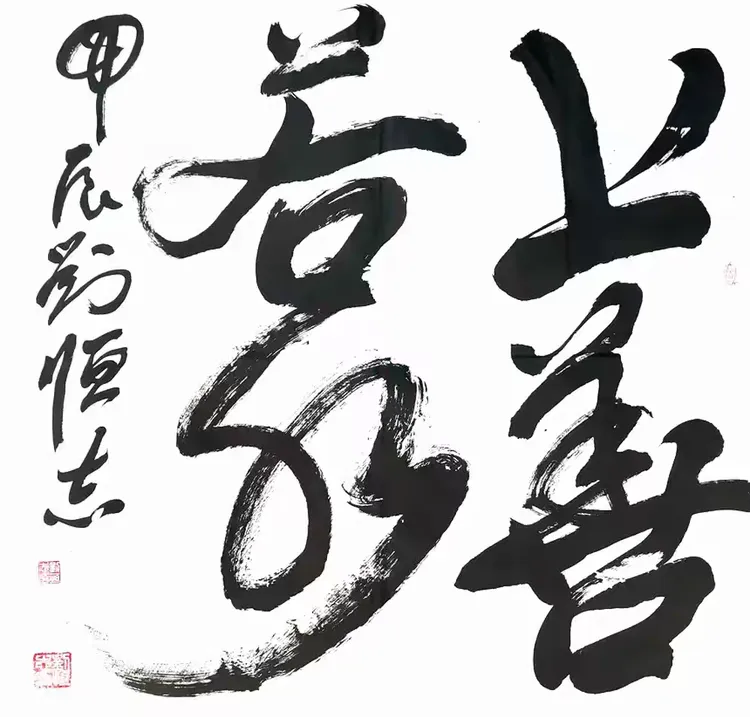 上善
若水
甲辰刘恒志